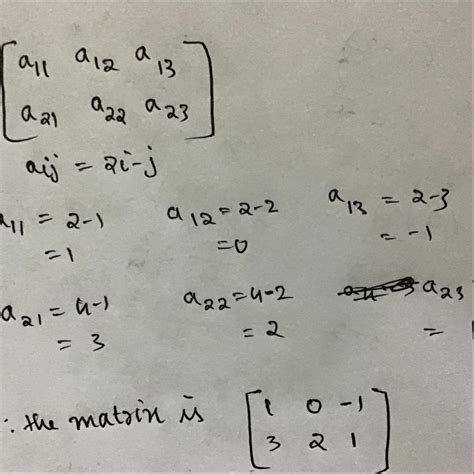 a11 a12 a13
a21 a22 a23
aij = 2i-j
a11 = 2-1 a12 = 2-2 a13 = 2-3
=1 =0 = -1
a21 = 4-1 a22 = 4-2 a23
= 3 = 2 =
∴ the matrix is
1 0 -1
3 2 1